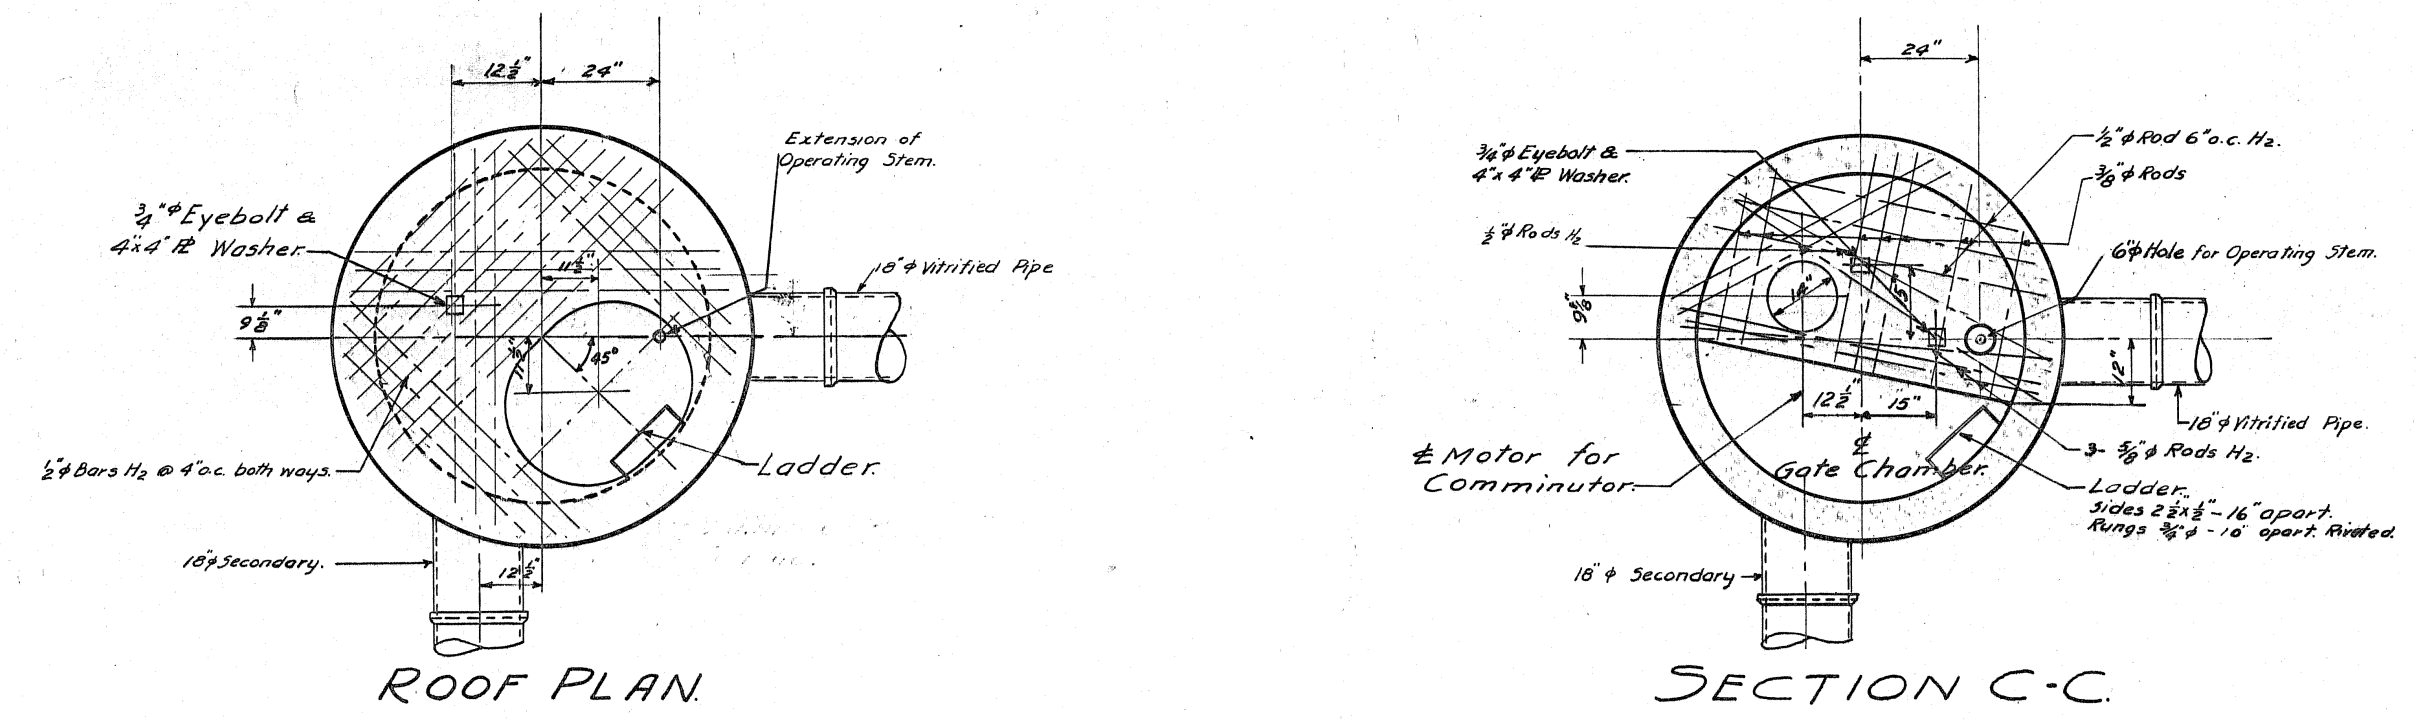 12 1/2"
24"
Extension of
Operating Stem.
3/4"φ Eyebolt &
4"x4" PL Washer.
11 1/2"
18"φ Vitrified Pipe
9 1/8"
11 1/2"
45°
1/2"φ Bars H2 @ 4"o.c. both ways.
Ladder.
18"φ Secondary.
12 1/2"
ROOF PLAN.
24"
3/4"φ Eyebolt &
4"x4" PL Washer.
1/2"φ Rod 6"o.c. H2.
3/8"φ Rods
1/2"φ Rods H2
6"φ Hole for Operating Stem.
14"
9 1/8"
12"
12 1/2"
15"
18"φ Vitrified Pipe.
℄ Motor for
Comminutor.
℄
Gate Chamber.
3- 5/8"φ Rods H2.
Ladder.
Sides 2 1/2"x 1/2" - 16" apart.
Rungs 3/4"φ - apart. Riveted.
18"φ Secondary
SECTION C-C.